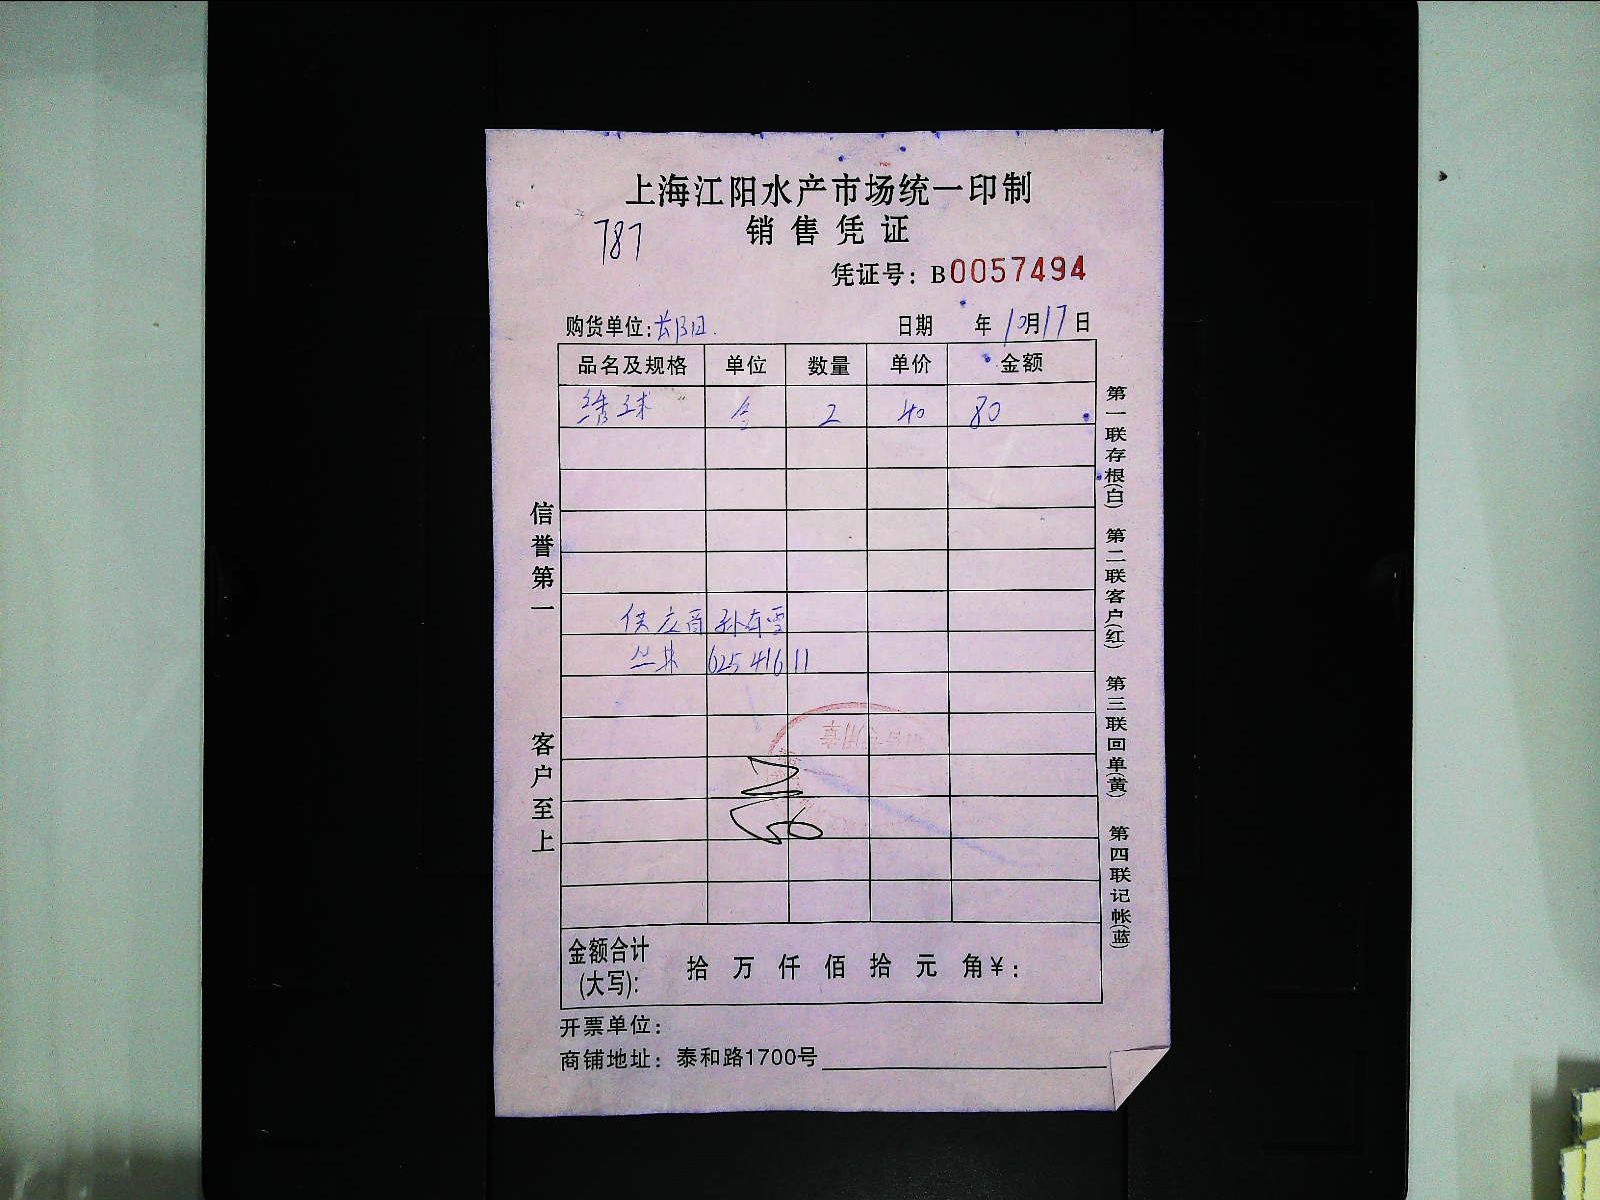 上海江阳水产市场统一印制
销售凭证
787
凭证号：B0057494
购货单位：
日期 年10月17日
品名及规格 单位 数量 单价 金额
绣球 2 40 80
供应商 孙有雪
62541611
信誉第一
客户至上
第一联存根(白) 第二联客户(红) 第三联回单(黄) 第四联记帐(蓝)
金额合计
(大写)： 拾 万 仟 佰 拾 元 角￥：
开票单位：
商铺地址：泰和路1700号